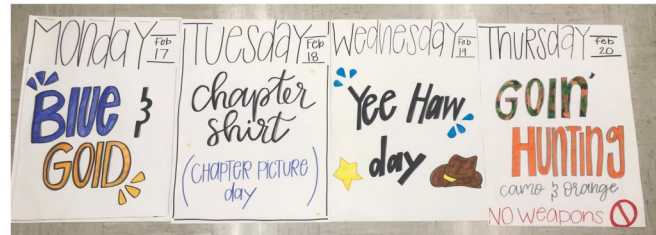 Monday
Feb
17
Blue &
Gold
Tuesday
Feb
18
chapter
shirt
(chapter picture
day)
Wednesday
Feb
19
Yee Haw
day
Thursday
Feb
20
Goin'
Hunting
camo & orange
No Weapons